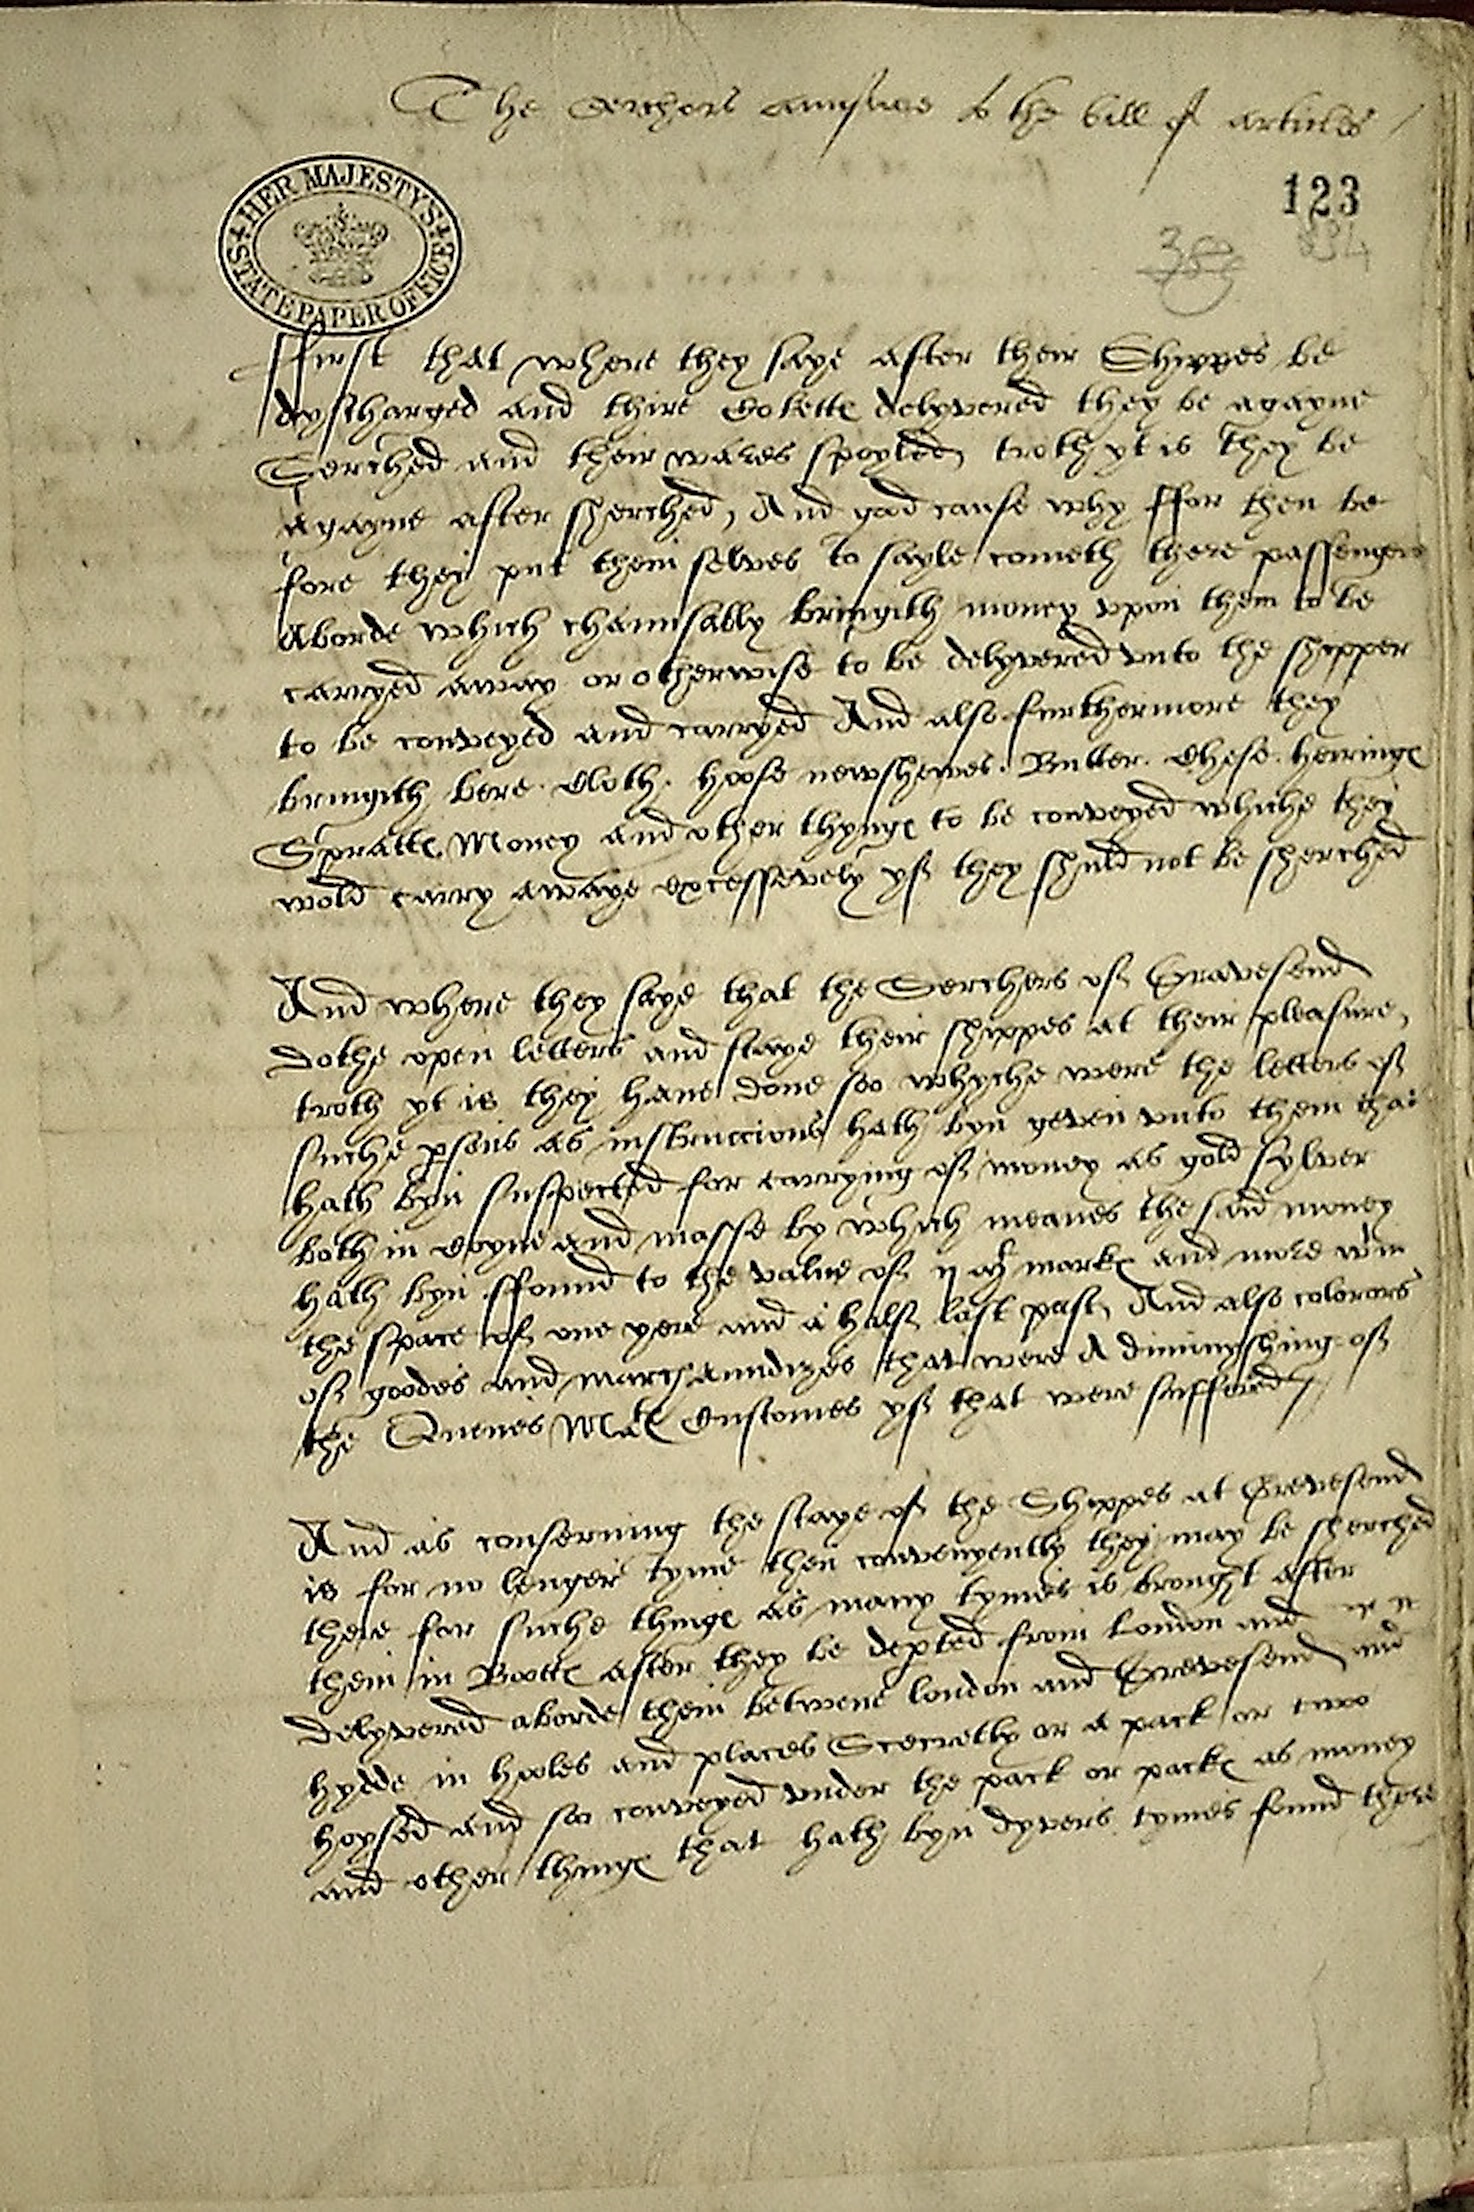 The serchors aunswe to the bill of articles
HER MAJESTY'S STATE PAPER OFFICE
123
38
ffirst that where they saye after their Shippes be
dyscharged and thire Cokette delyvered they be agayne
Serched and their wares spoyled, troth yt is they be
agayne after sherched, And god cause why ffor then be
fore they put them selves to sayle cometh there passengers
Aborde which chaunsably bringith money vpon them to be
carryed away or otherwise to be delyvered vnto the shipper
to be conveyed and carryed And also furthermore they
bringith bere. Cloth. hoose newshewes. Butter. Chese. herringe
Spratte Money and other thynge to be conveyed whiche they
wold carry awaye excessevely yf they shuld not be sherched
And where they saye that the Serchers of Gravesend
dothe open letters and staye their shippes at their pleasure,
troth yt is they have done soo whyche were the letters of
suche psons as instruccions hath byn geven vnto them that
hath byn suspected for carrying of money as gold sylver
both in coyne and masse by which meanes the said money
hath byn ffound to the value of marke and more wtin
the space of one yere and a half last past, And also colorors
of goodes and marchaundizes that were A diminyshing of
the Quenes Mate Customes yf that were suffered
And as conserning the staye of the Shippes at Grevesend
is for no lenger tyme then convenyently they may be sherched
there for suche thinge as many tymes is brought after
them in Boote after they be depted from London and
delyvered aborde them betwene london and Grevesend and
hydde in hooles and places Secretly or a pack or two
hoysed and soo conveyed vnder the pack or packe as money
and other thinge that hath byn dyvers tymes found there